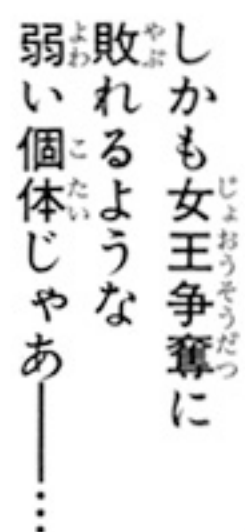 しかも女王争奪に
敗れるような
弱い個体じゃあ――…